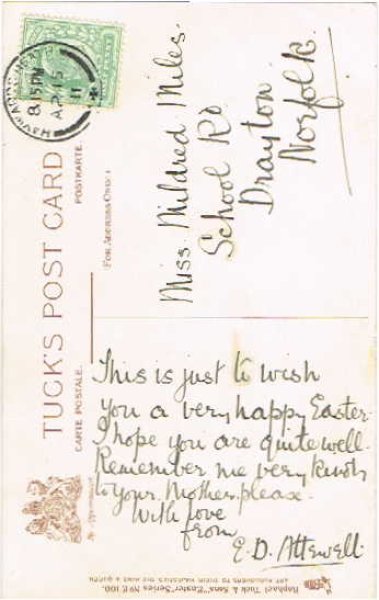 TUCK'S POST CARD
CARTE POSTALE.
POSTKARTE.
(FOR ADDRESS ONLY.)
HAYWARDS HEATH
8.15 PM
AP 15
11
Miss. Mildred Miles.
School Rd
Drayton
Norfolk.
This is just to wish
you a very happy Easter
I hope you are quite well.
Remember me very kindly
to your Mother please.
With love
from
E. D. Attewell.
Raphael Tuck & Sons' "Easter" Series No E 100.
ART PUBLISHERS TO THEIR MAJESTIES THE KING & QUEEN